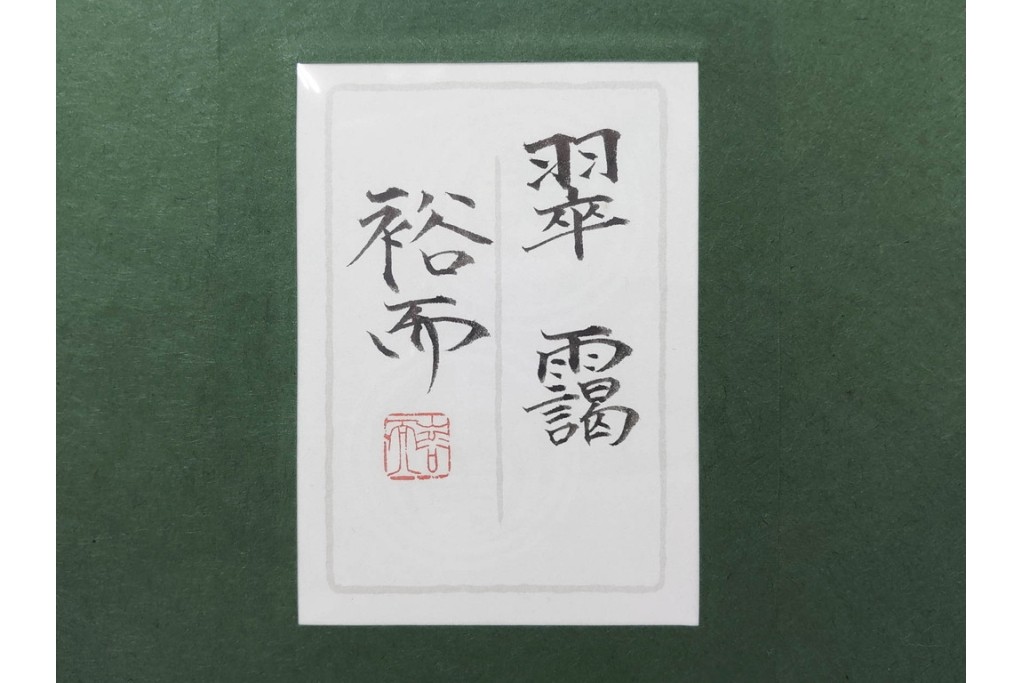 翠靄
裕而